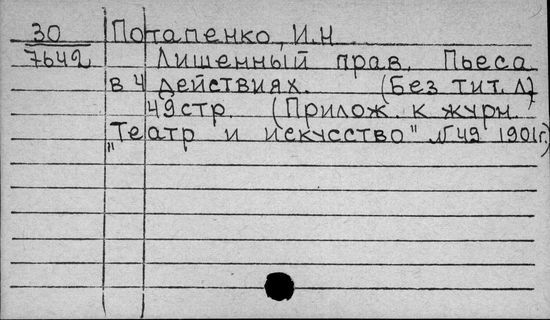 30 Потапенко, И.Н
7642 Лишенный прав. Пьеса
в 4 действиях. (Без тит. л)
49 стр. (Прилож. к журн.
"Театр и искусство" №49 1901г.)